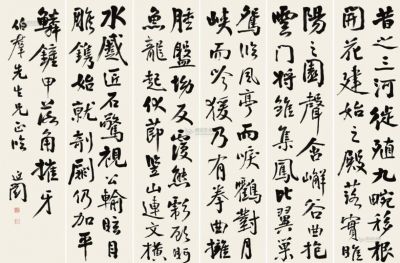 昔之三河徙殖九畹移根
開花建始之殿落實睢
陽之園聲含嶰谷曲抱
雲門將雛集鳳比翼巢
鴛臨風亭而唳鶴對月
峽而吟猨乃有拳曲擁
腫盤坳反覆熊彪顧盼
魚龍起伏節竪山連文橫
水蹙匠石驚視公輸眩目
雕鐫始就剞劂仍加平
鱗鏟甲落角摧牙
伯羣先生兄正
延闓